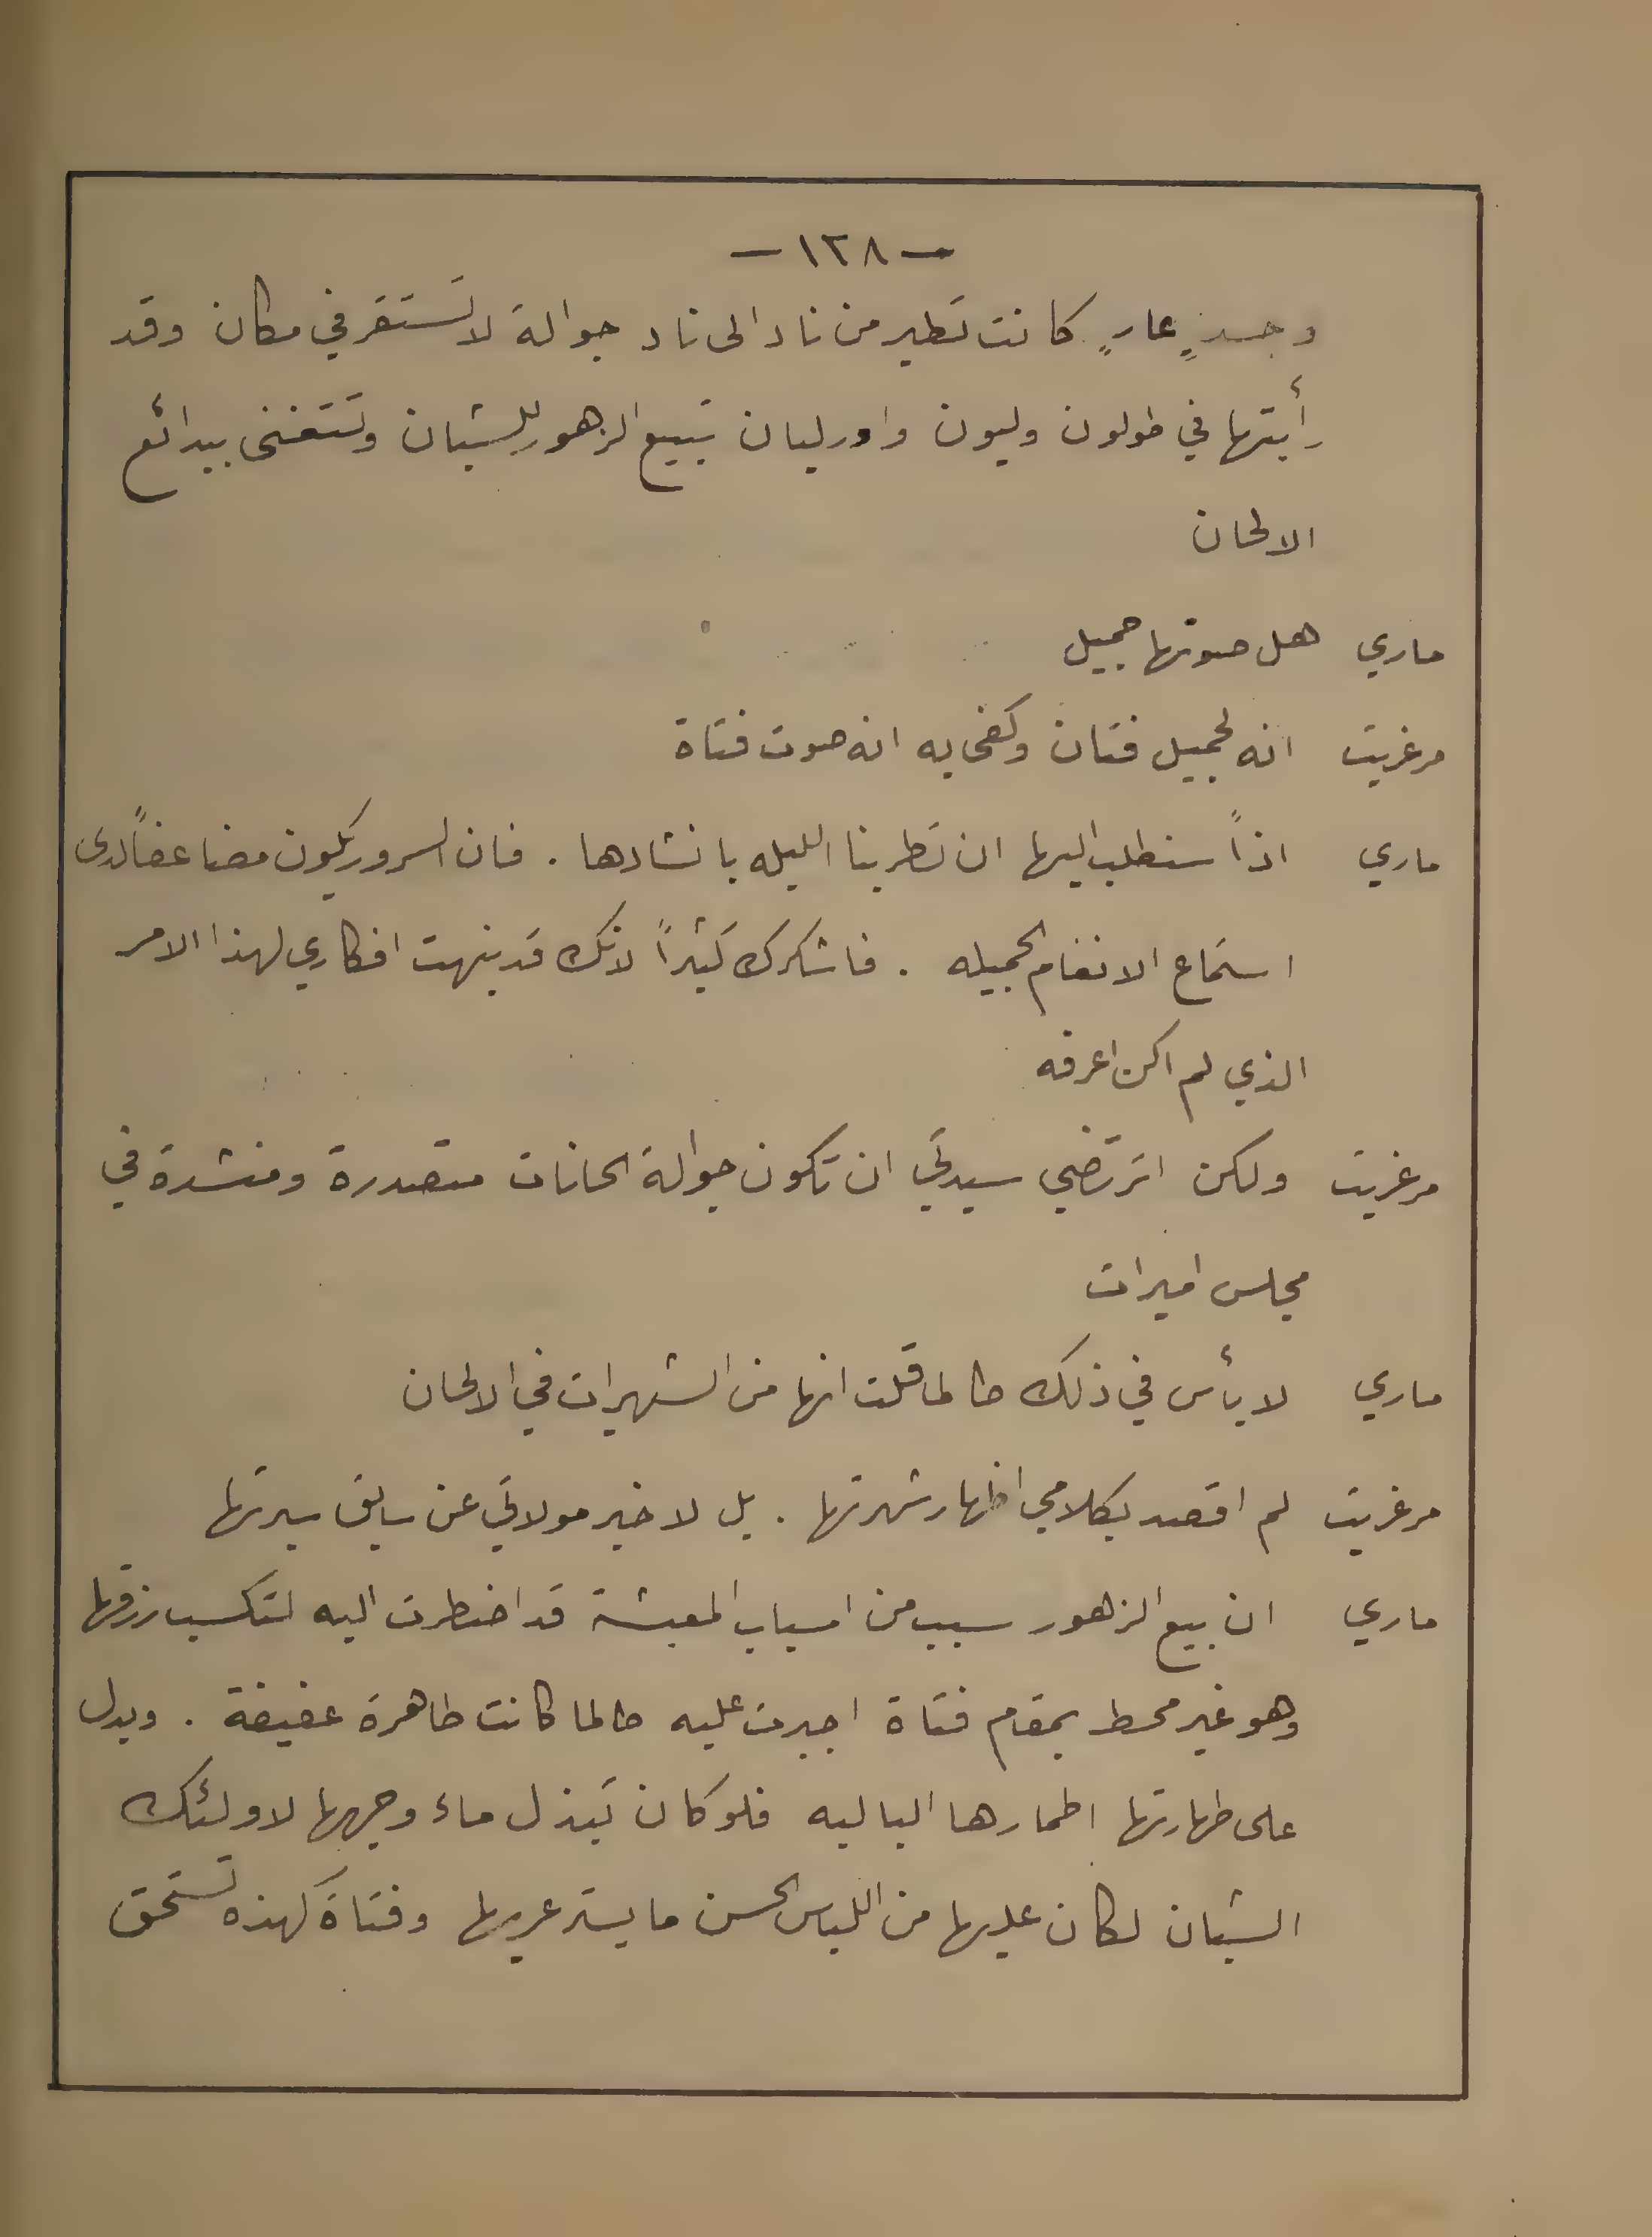 — ١٢٨ —
وجسدٍ عارٍ كانت تطير من ناد الى ناد جوالة لا تستقر في مكان وقد
رأيتها في طولون وليون واورليان تبيع الزهور للشبان وتتغنى ببدائع
الالحان
ماري هل صوتها جميل
مرغريت انه لجميل فتان وكفى به انه صوت فتاة
ماري اذاً سنطلب اليها ان تطربنا الليله بانشادها . فان السرور يكون مضاعفاً لدى
استماع الانغام الجميله . فاشكرك كثيراً لانك قد نبهت افكاري لهذا الامر
الذي لم اكن اعرفه
مرغريت ولكن اترتضي سيدتي ان تكون جوالة الحانات متصدرة ومنشدة في
مجلس اميرات
ماري لا بأس في ذلك طالما قلت انها من الشهيرات في الالحان
مرغريت لم اقصد بكلامي اظهار شهرتها . بل لاخبر مولاتي عن سابق سيرتها
ماري ان بيع الزهور سبب من اسباب المعيشة قد اضطرت اليه لتكسب رزقها
وهو غير محط بمقام فتاة اجبرت عليه طالما كانت طاهرة عفيفة . ويدل
على طهارتها اطمارها الباليه فلو كان تبذل ماء وجهها لاولئك
الشبان لكان عليها من اللباس الحسن ما يستر عريها وفتاة كهذه تستحق